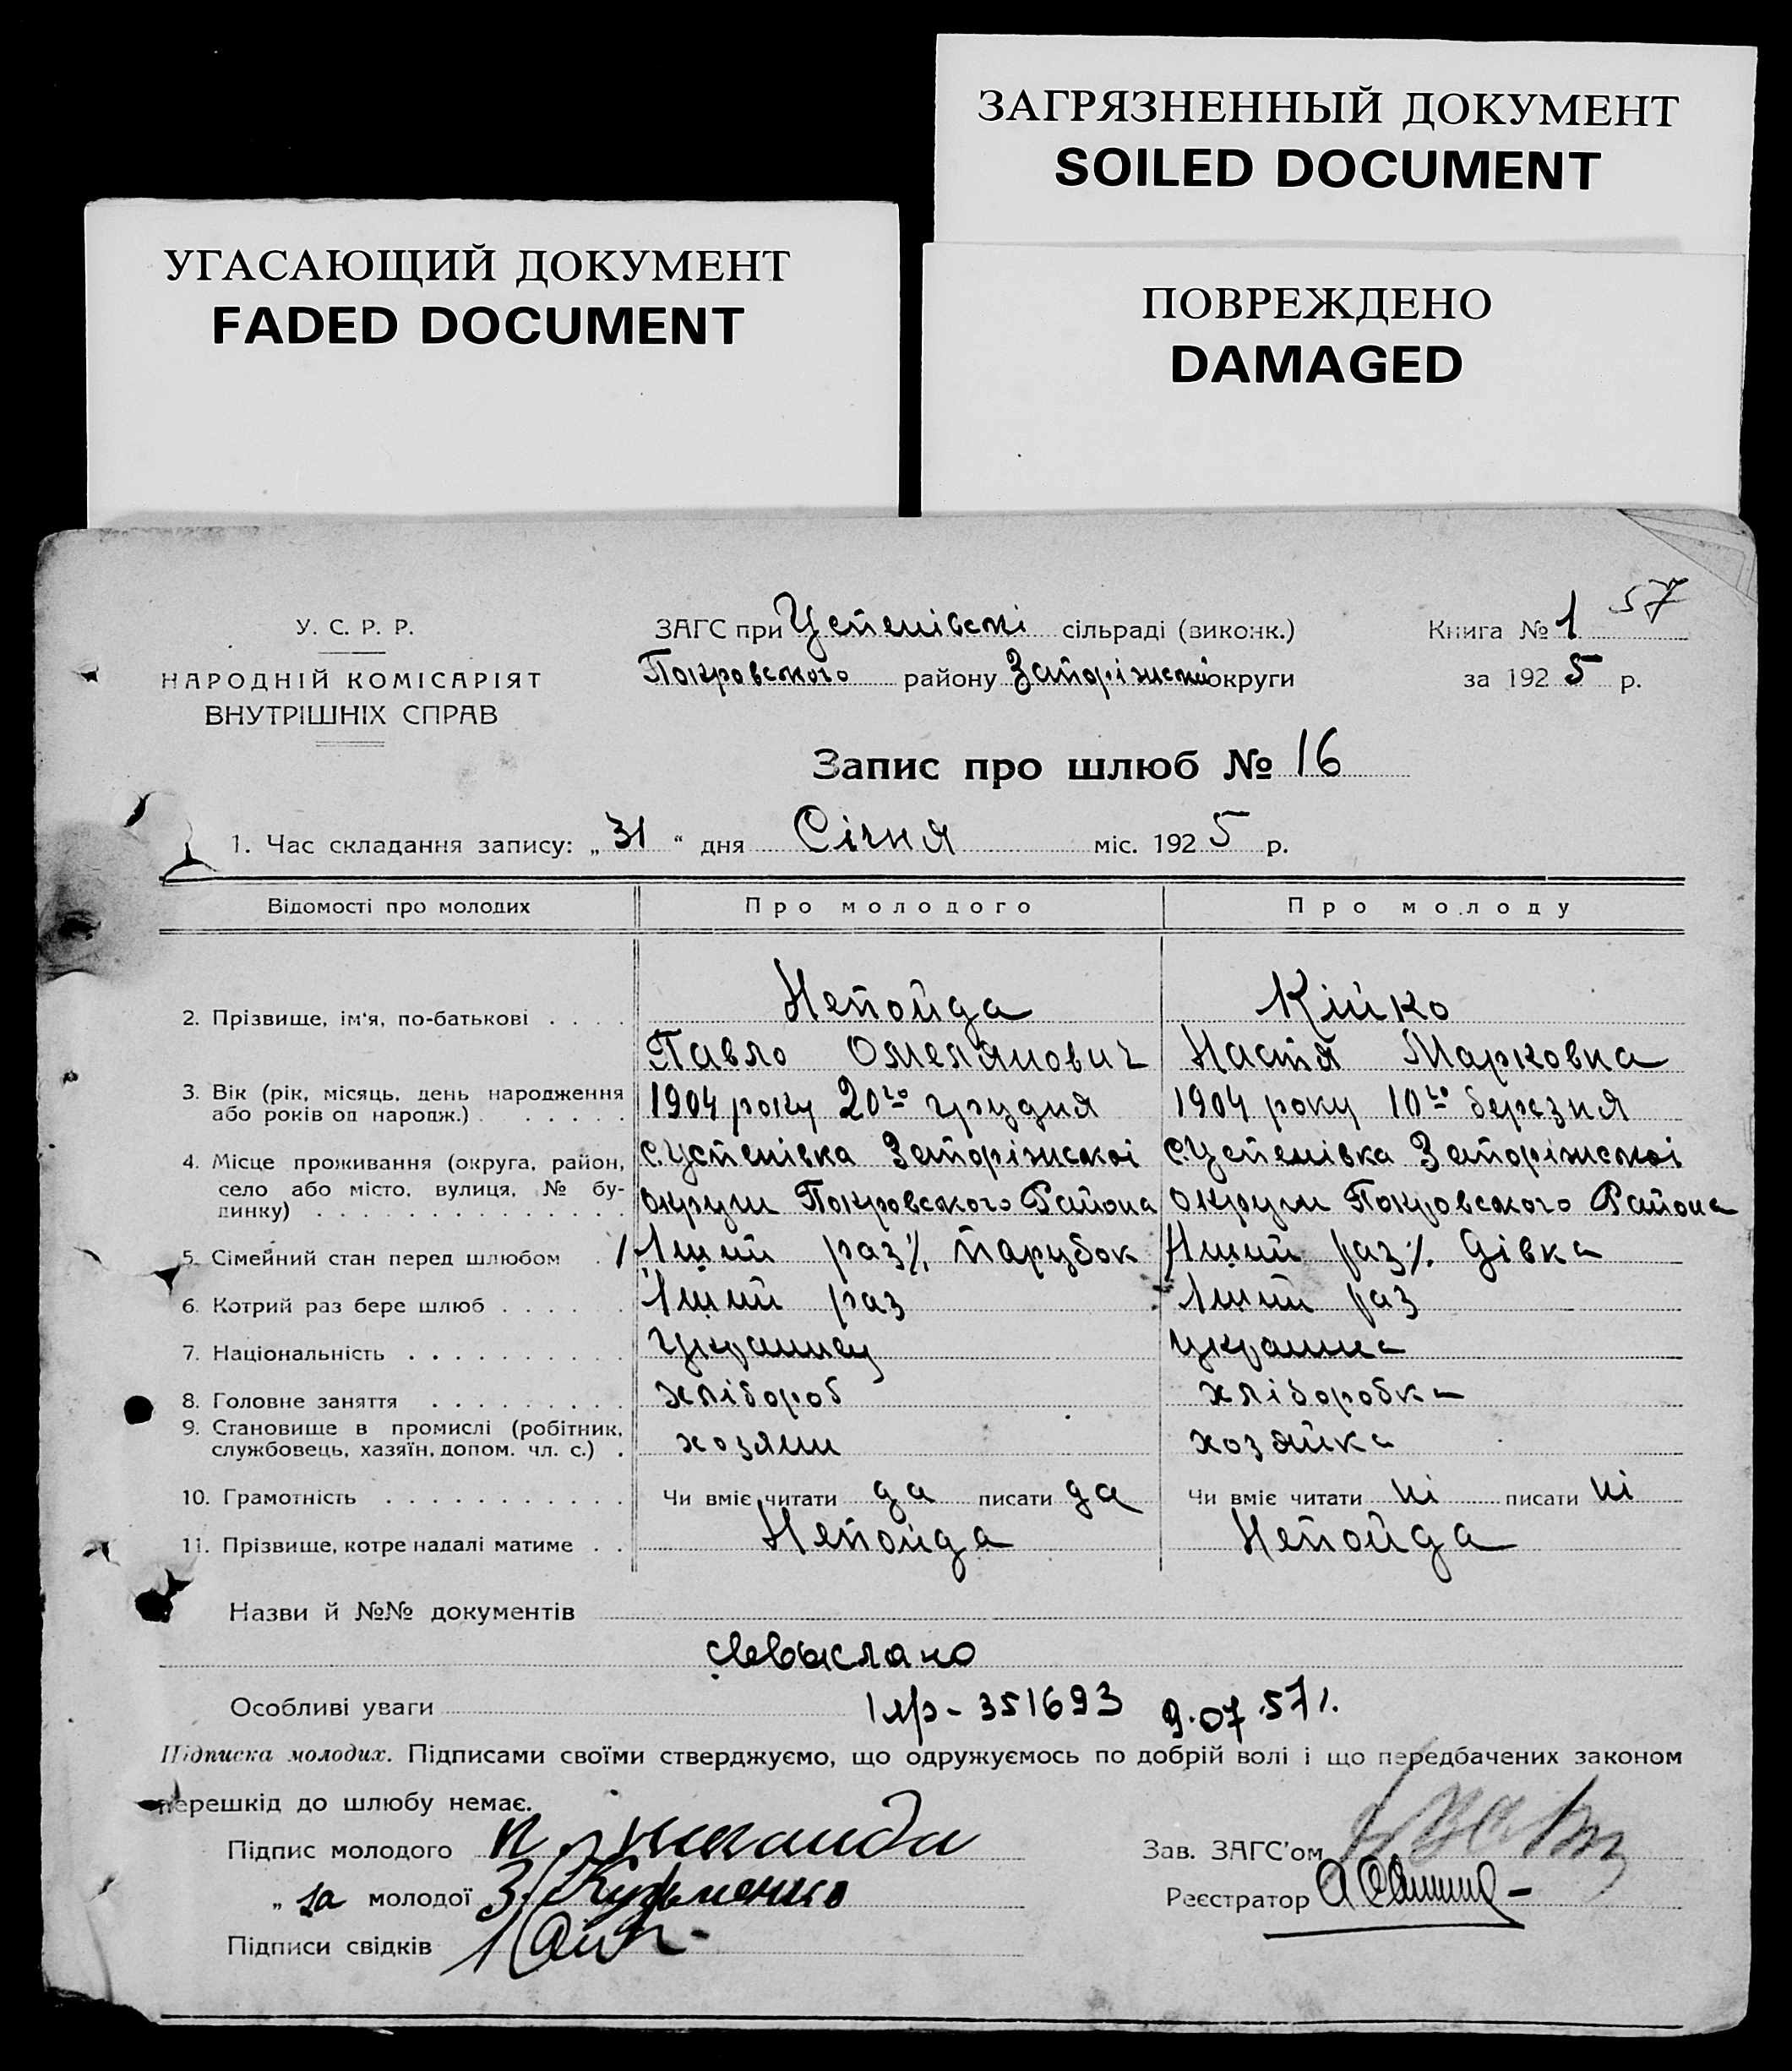 ЗАГРЯЗНЕННЫЙ ДОКУМЕНТ
SOILED DOCUMENT
УГАСАЮЩИЙ ДОКУМЕНТ
FADED DOCUMENT
ПОВРЕЖДЕНО
DAMAGED
57
У. С. Р. Р.
НАРОДНІЙ КОМІСАРІЯТ
ВНУТРІШНІХ СПРАВ
ЗАГС при Успенівскі сільраді (виконк.)
Покровського району Запоріжської округи
Книга № 1
за 1925 р.
Запис про шлюб № 16
1. Час складання запису: „31“ дня Січня міс. 1925 р.
Відомості про молодих Про молодого Про молоду
2. Прізвище, ім'я, по-батькові . . . . Непойда Кійко
Павло Омелянович Настя Марковна
3. Вік (рік, місяць, день народження або років од народж.) . . . . . . 1904 року 20го грудня 1904 року 10го березня
4. Місце проживання (округа, район, село або місто, вулиця, № будинку) . . . . . . . . . . . . . .
с. Успенівка Запоріжскоі с. Успенівка Запоріжскоі
округи Покровського Района округи Покровського Района
5. Сімейний стан перед шлюбом . 1ший раз% парубок 1ший раз% дівка
6. Котрий раз бере шлюб . . . . . 1ший раз 1ший раз
7. Національність . . . . . . . . . . Украинец украинка
8. Головне заняття . . . . . . . . . хлібороб хліборобка
9. Становище в промислі (робітник, службовець, хазяїн, допом. чл. с.) . хозяин хозяйка
10. Грамотність . . . . . . . . . . . Чи вміє читати да писати да Чи вміє читати ні писати ні
11. Прізвище, котре надалі матиме . . Непойда Непойда
Назви й №№ документів
Особливі уваги 351693 9.07.57г.
Підписка молодих. Підписами своїми стверджуємо, що одружуємось по добрій волі і що передбачених законом
перешкід до шлюбу немає.
Підпис молодого
Зав. ЗАГС'ом
„ за молодої З. Кузьменко
Реєстратор
Підписи свідків